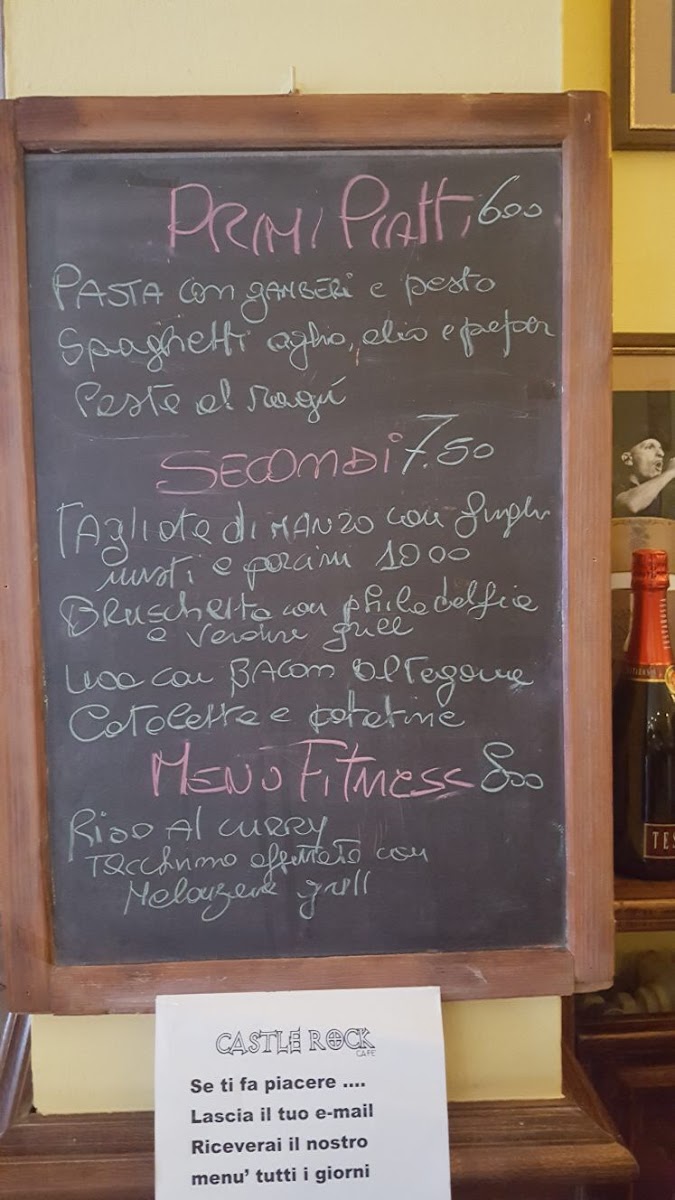 PRIMI PIATTI 600
PASTA con GAMBERI e pesto
Spaghetti aglio, olio e peperon
Paste al Ragú
SECONDI 7.50
TAGliata di MANZO con funghi
misti e porcini 1000
BRUSCHETTA con philadelfia
e verdure grill
con BACON
Cotolette e patatine
MENÙ FITNESS 800
RISO Al CURRY
TACCHINO affettato con
Melanzane grill
CASTLE ROCK
CAFE'
Se ti fa piacere ....
Lascia il tuo e-mail
Riceverai il nostro
menu' tutti i giorni
TES